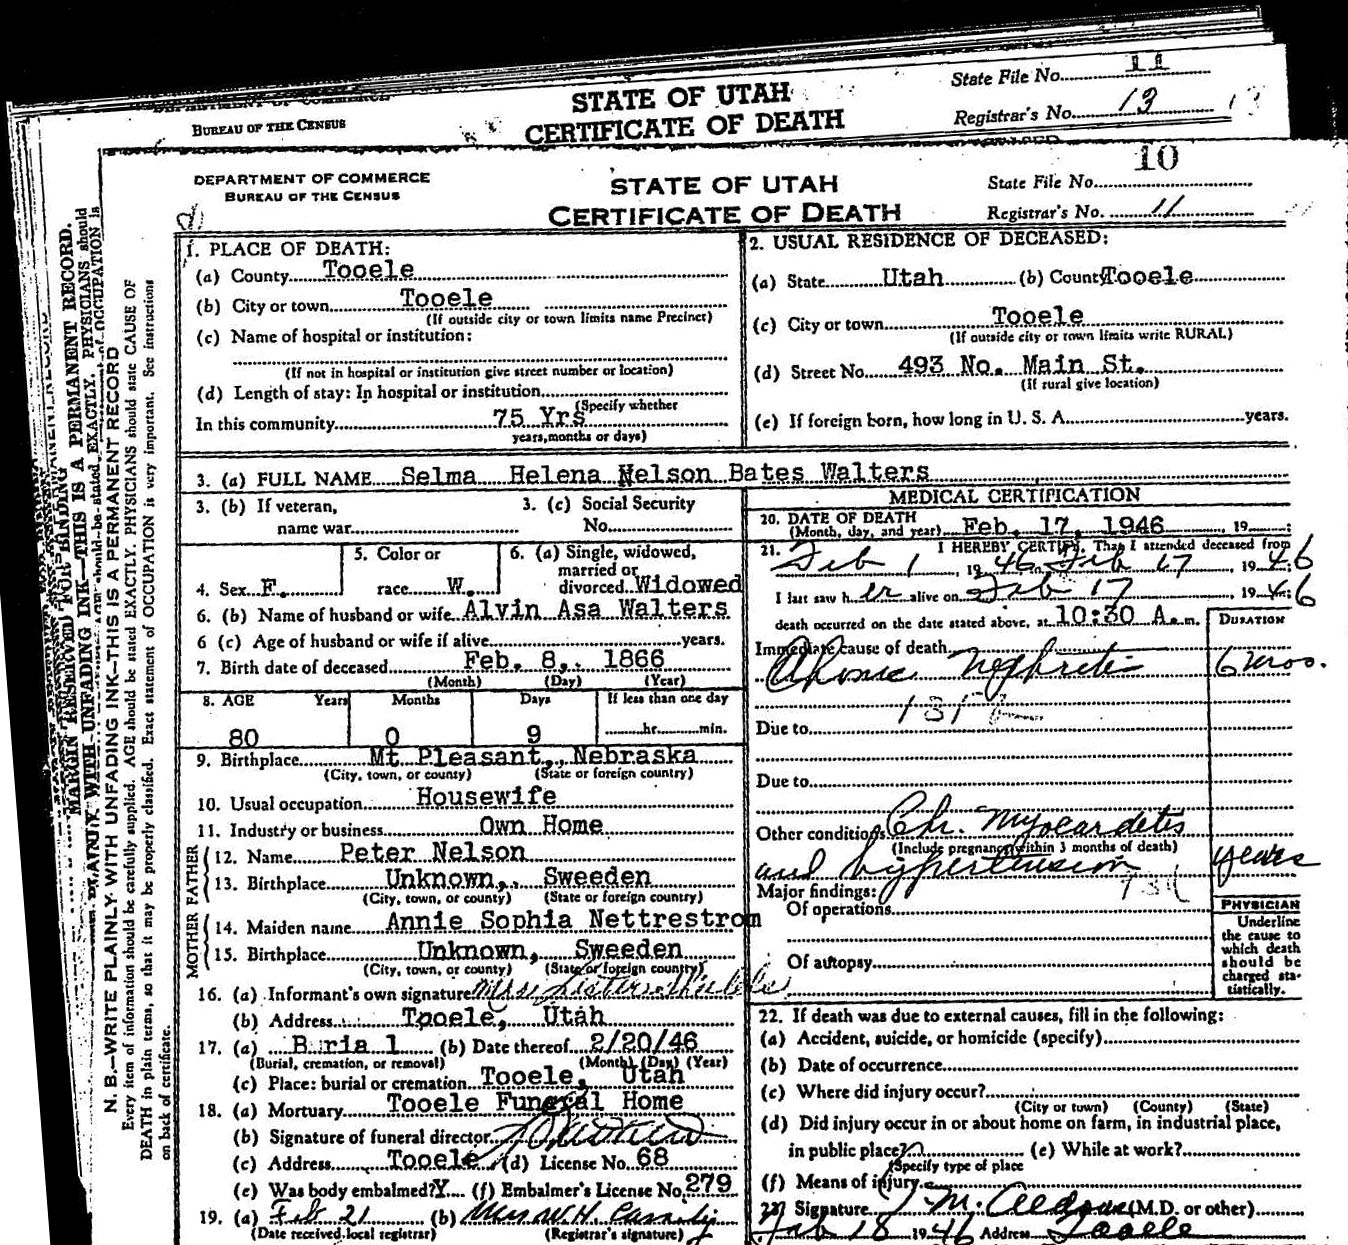 State File No. 11
STATE OF UTAH
BUREAU OF THE CENSUS
CERTIFICATE OF DEATH
Registrar's No. 13
10
DEPARTMENT OF COMMERCE
BUREAU OF THE CENSUS
STATE OF UTAH
CERTIFICATE OF DEATH
State File No.
Registrar's No. 11
MARGIN RESERVED FOR BINDING
N. B.—WRITE PLAINLY WITH UNFADING INK—THIS IS A PERMANENT RECORD
Every item of information should be carefully supplied. AGE should be stated EXACTLY. PHYSICIANS should state CAUSE OF
DEATH in plain terms, so that it may be properly classified. Exact statement of OCCUPATION is very important. See instructions
on back of certificate.
1. PLACE OF DEATH:
(a) County Tooele
(b) City or town Tooele
(If outside city or town limits name Precinct)
(c) Name of hospital or institution:
(If not in hospital or institution give street number or location)
(d) Length of stay: In hospital or institution
(Specify whether
In this community 75 Yrs
years, months or days)
2. USUAL RESIDENCE OF DECEASED:
(a) State Utah (b) County Tooele
(c) City or town Tooele
(If outside city or town limits write RURAL)
(d) Street No. 493 No. Main St.
(If rural give location)
(e) If foreign born, how long in U. S. A. years.
3. (a) FULL NAME Selma Helena Nelson Bates Walters
3. (b) If veteran, 3. (c) Social Security
name war No.
4. Sex F. 5. Color or race W. 6. (a) Single, widowed, married or divorced Widowed
6. (b) Name of husband or wife Alvin Asa Walters
6 (c) Age of husband or wife if alive years.
7. Birth date of deceased Feb. 8, 1866
(Month) (Day) (Year)
8. AGE Years Months Days If less than one day
80 0 9 hr. min.
9. Birthplace Mt Pleasant, Nebraska
(City, town, or county) (State or foreign country)
10. Usual occupation Housewife
11. Industry or business Own Home
FATHER
12. Name Peter Nelson
13. Birthplace Unknown, Sweeden
(City, town, or county) (State or foreign country)
MOTHER
14. Maiden name Annie Sophia Nettrestrom
15. Birthplace Unknown, Sweeden
(City, town, or county) (State or foreign country)
16. (a) Informant's own signature Mrs.
(b) Address Tooele, Utah
17. (a) Burial (b) Date thereof 2/20/46
(Burial, cremation, or removal) (Month) (Day) (Year)
(c) Place: burial or cremation Tooele, Utah
18. (a) Mortuary Tooele Funeral Home
(b) Signature of funeral director
(c) Address Tooele (d) License No. 68
(e) Was body embalmed? Y (f) Embalmer's License No. 279
19. (a) Feb 21 (b) Mrs W.H. Cassity
(Date received local registrar) (Registrar's signature)
MEDICAL CERTIFICATION
20. DATE OF DEATH
(Month, day, and year) Feb. 17, 1946, 19
21. I HEREBY CERTIFY, That I attended deceased from
Feb 1, 1946 to Feb 17 1946
I last saw her alive on Feb 17 1946
death occurred on the date stated above, at 10:30 A.m.
DURATION
Immediate cause of death
Chronic Nephritis 6 mos.
Due to
Due to
Other conditions Chr. Myocarditis
(Include pregnancy within 3 months of death)
and hypertension years
Major findings:
Of operations
Of autopsy
PHYSICIAN
Underline
the cause to
which death
should be
charged sta-
tistically.
22. If death was due to external causes, fill in the following:
(a) Accident, suicide, or homicide (specify)
(b) Date of occurrence
(c) Where did injury occur?
(City or town) (County) (State)
(d) Did injury occur in or about home on farm, in industrial place,
in public place? (e) While at work?
(Specify type of place
(f) Means of injury
23. Signature (M.D. or other)
Feb 18 1946 Address Tooele